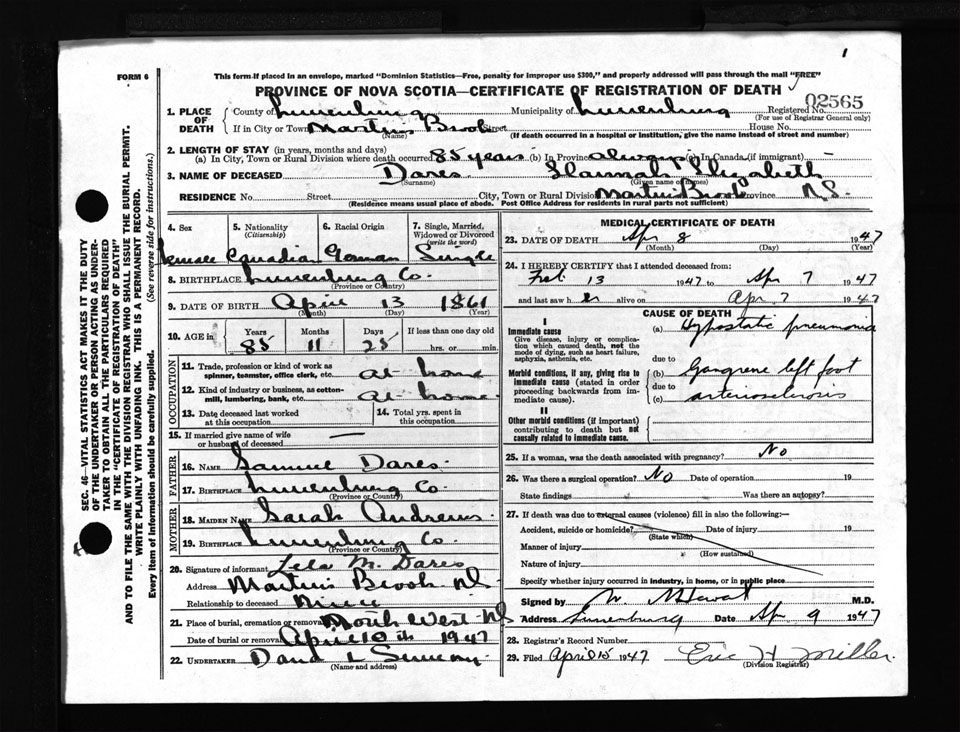 1
FORM 6
This form if placed in an envelope, marked "Dominion Statistics—Free, penalty for improper use $300," and properly addressed will pass through the mail "FREE"
PROVINCE OF NOVA SCOTIA—CERTIFICATE OF REGISTRATION OF DEATH
02565
1. PLACE OF DEATH County of Lunenburg Municipality of Lunenburg Registered No.
(For use of Registrar General only)
If in City or Town Martins Brook Street House No.
(Name) (If death occurred in a hospital or institution, give the name instead of street and number)
2. LENGTH OF STAY (in years, months and days)
(a) In City, Town or Rural Division where death occurred 85 years (b) In Province always (c) In Canada (if immigrant)
3. NAME OF DECEASED Dares Hannah Elizabeth
(Surname) (Given name or names)
RESIDENCE No. Street City, Town or Rural Division Martins Brook Province N.S.
(Residence means usual place of abode. Post Office Address for residents in rural parts not sufficient)
4. Sex 5. Nationality (Citizenship) 6. Racial Origin 7. Single, Married, Widowed or Divorced (write the word)
female Canadian German Single
8. BIRTHPLACE Lunenburg Co.
(Province or Country)
9. DATE OF BIRTH April 13 1861
(Month) (Day) (Year)
10. AGE in Years Months Days If less than one day old
85 11 25 hrs. or min.
OCCUPATION
11. Trade, profession or kind of work as spinner, teamster, office clerk, etc. at home
12. Kind of industry or business, as cotton-mill, lumbering, bank, etc. at home
13. Date deceased last worked at this occupation 14. Total yrs. spent in this occupation
15. If married give name of wife or husband of deceased —
FATHER
16. NAME Samuel Dares
17. BIRTHPLACE Lunenburg Co.
(Province or Country)
MOTHER
18. MAIDEN NAME Sarah Andrews
19. BIRTHPLACE Lunenburg Co.
(Province or Country)
20. Signature of informant Lela M. Dares
Address Martins Brook NS
Relationship to deceased Niece
21. Place of burial, cremation or removal North West NS
Date of burial or removal April 10th 1947
22. UNDERTAKER
(Name and address)
MEDICAL CERTIFICATE OF DEATH
23. DATE OF DEATH Apr 8 1947
(Month) (Day) (Year)
24. I HEREBY CERTIFY that I attended deceased from:
Feb 13 1947 to Apr 7 1947
and last saw her alive on Apr 7 1947
CAUSE OF DEATH
I
Immediate cause
Give disease, injury or complication which caused death, not the mode of dying, such as heart failure, asphyxia, asthenia, etc.
(a) Hypostatic pneumonia
due to
Morbid conditions, if any, giving rise to immediate cause (stated in order proceeding backwards from immediate cause).
(b) Gangrene left foot
due to
(c) arteriosclerosis
II
Other morbid conditions (if important) contributing to death but not causally related to immediate cause.
25. If a woman, was the death associated with pregnancy? No
26. Was there a surgical operation? No Date of operation 19
State findings Was there an autopsy?
27. If death was due to external causes (violence) fill in also the following:—
Accident, suicide or homicide? Date of injury 19
(State which)
Manner of injury
(How sustained)
Nature of injury
Specify whether injury occurred in industry, in home, or in public place
Signed by M.D.
Address Lunenburg Date Apr 9 1947
28. Registrar's Record Number
29. Filed April 15 1947 Eric H Miller
(Division Registrar)
SEC. 46—VITAL STATISTICS ACT MAKES IT THE DUTY
OF THE UNDERTAKER OR PERSON ACTING AS UNDER-
TAKER TO OBTAIN ALL THE PARTICULARS REQUIRED
IN THE "CERTIFICATE OF REGISTRATION OF DEATH"
AND TO FILE THE SAME WITH THE DIVISION REGISTRAR WHO SHALL ISSUE THE BURIAL PERMIT.
WRITE PLAINLY WITH UNFADING INK. THIS IS A PERMANENT RECORD.
Every item of information should be carefully supplied. (See reverse side for instructions.)